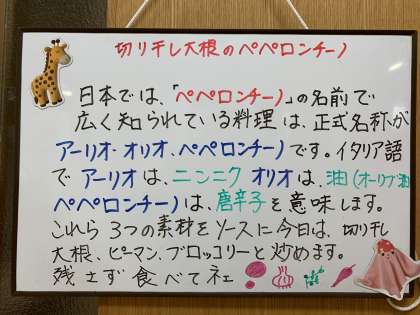 切り干し大根のペペロンチーノ
日本では、「ペペロンチーノ」の名前で
広く知られている料理は、正式名称が
アーリオ・オリオ、ペペロンチーノです。イタリア語
で アーリオは、ニンニク オリオは、油(オーリブ油
ペペロンチーノは、唐辛子を意味します。
これら 3つの素材をソースに今日は、切り干し
大根、ピーマン、ブロッコリーと炒めます。
残さず食べてネェ